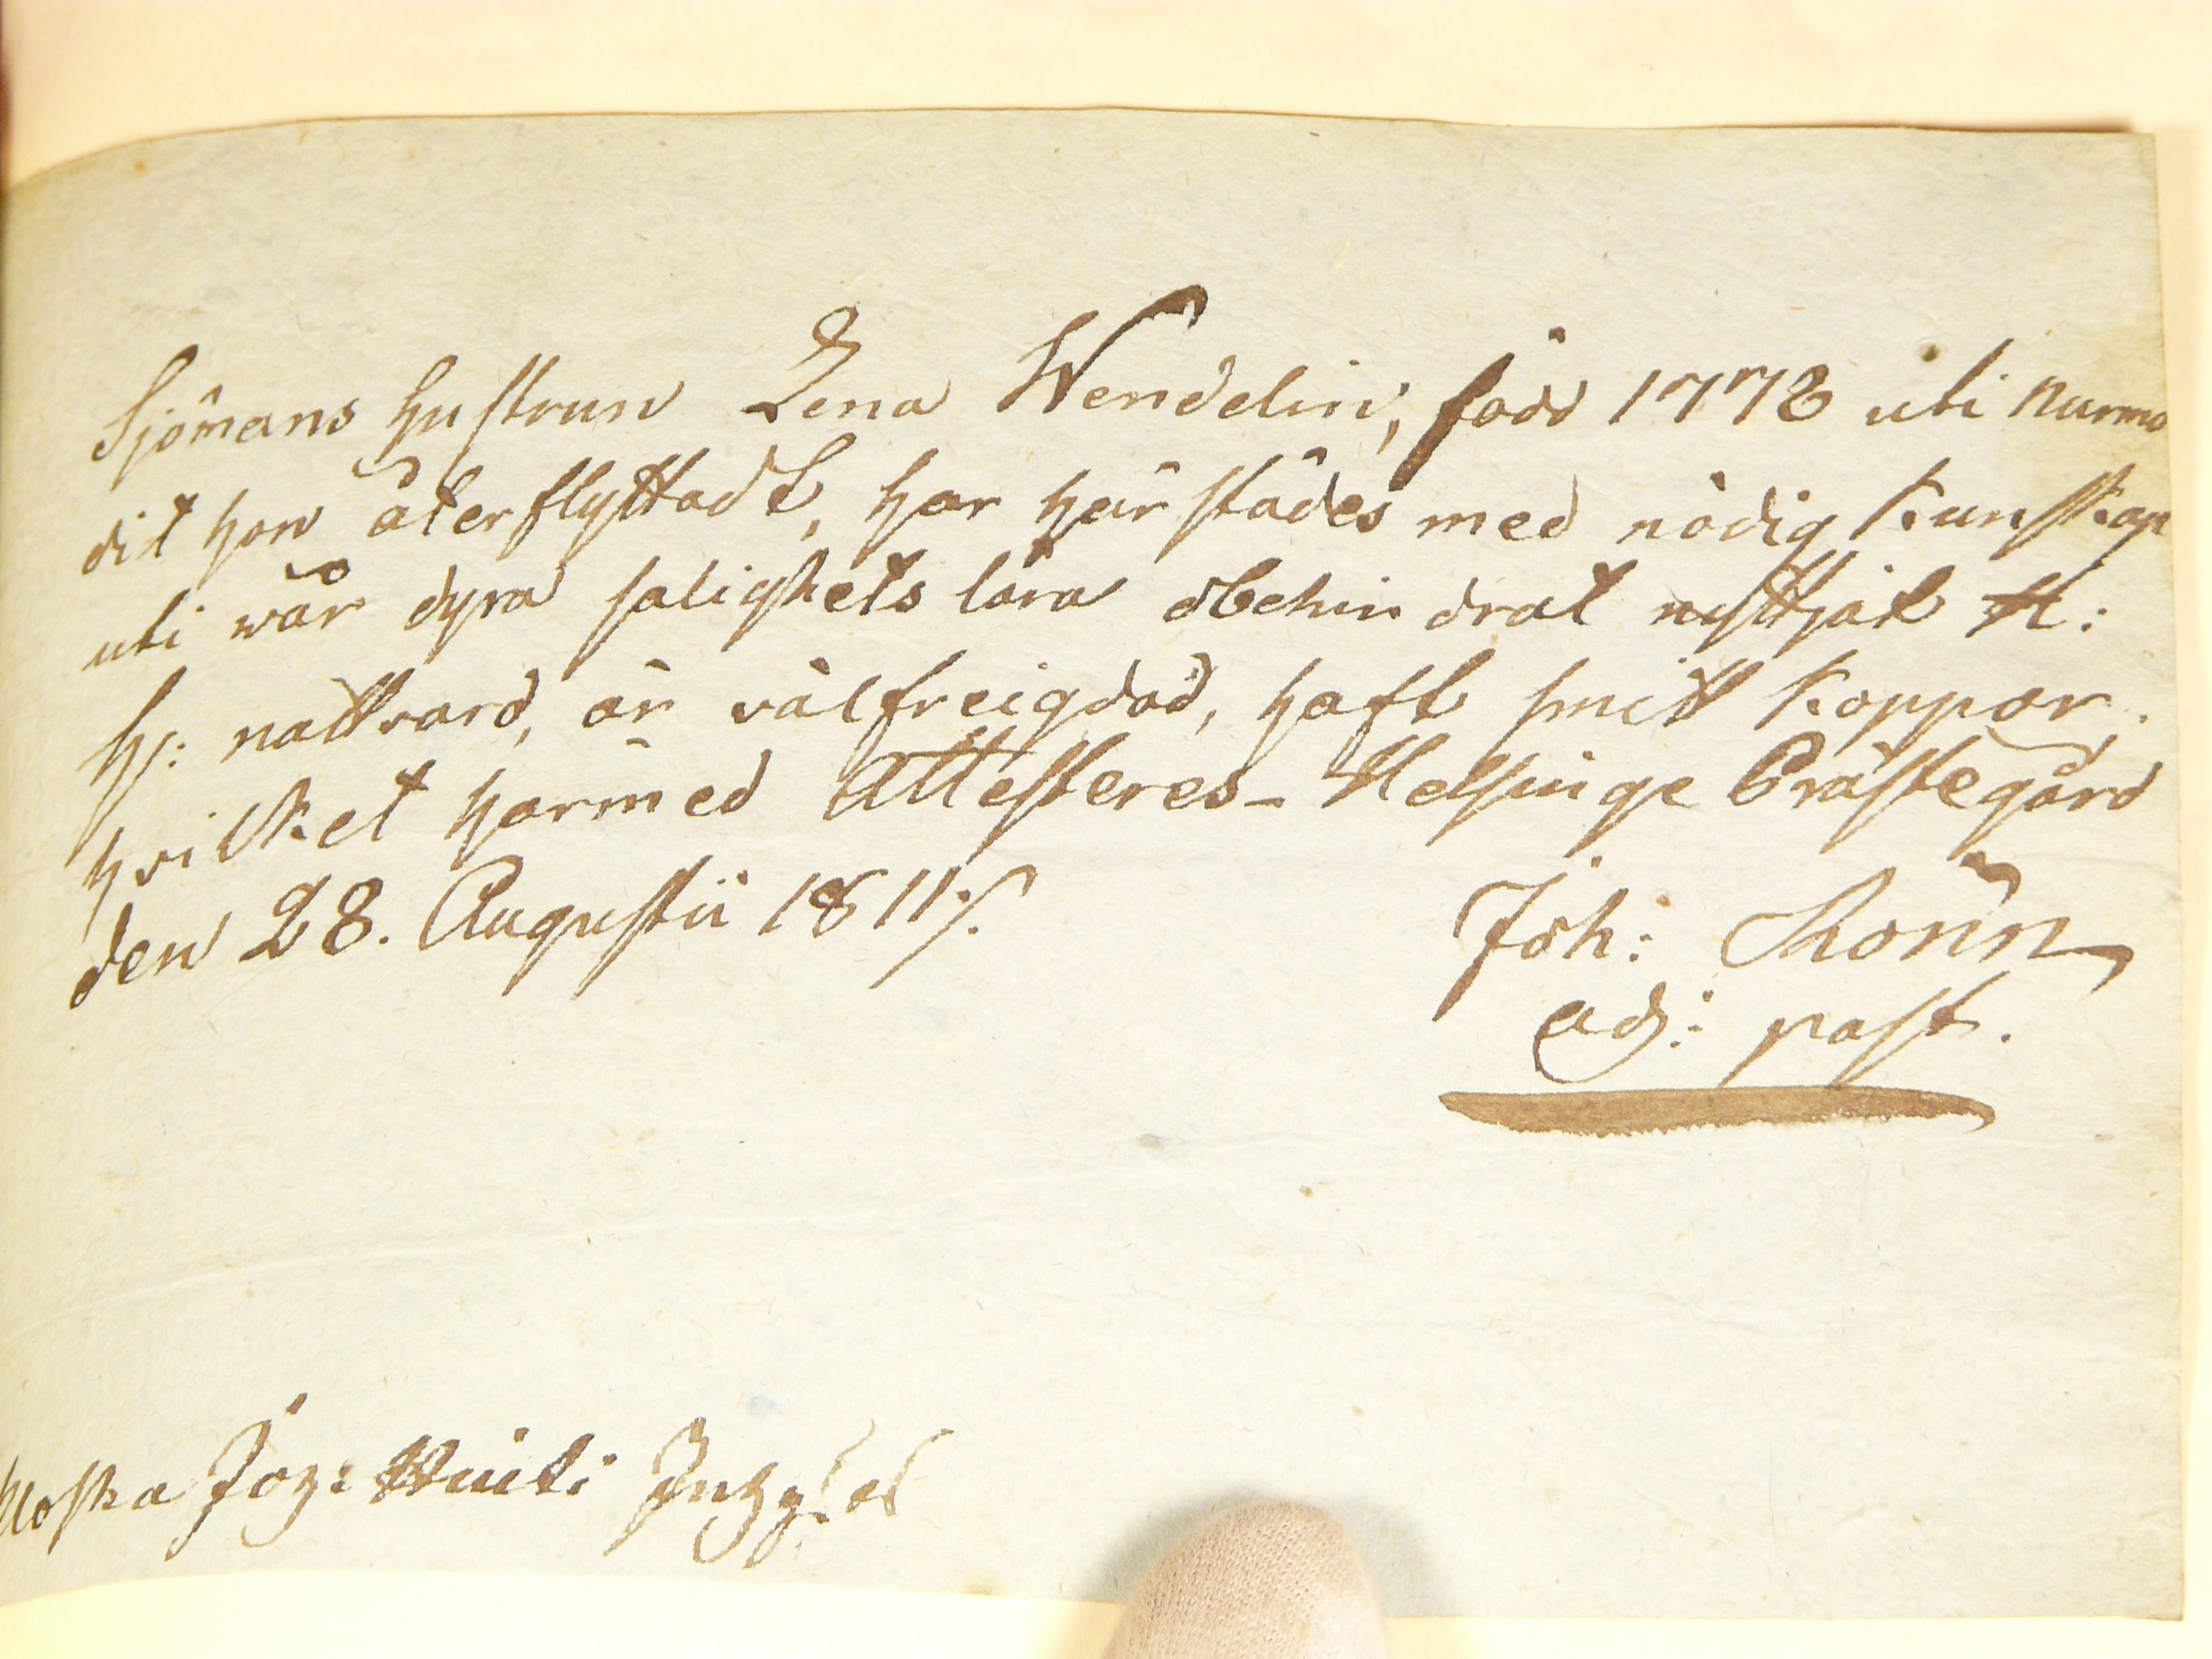 Sjömans hustrun Lena Wendelin, född 1778 uti Nurmo
dit hon återflyttadt, har härstädes med nödig Kunskap
uti wår dyra salighets lära obehindrat nyttjat H:
H: nattvard, är välfreigdad, haft smitt Koppor,
hvilket harmed Attesteres_ Helsinge Prästegård
den 28. Augustii 1811
Joh: Rönn
adj: past.
Joh: